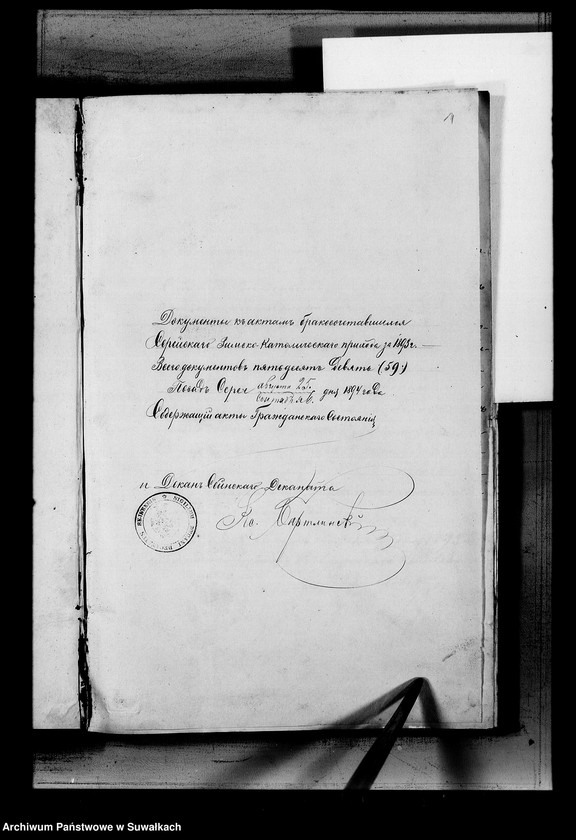 Документы къ актамъ бракосочетавшихся
Серейскаго Римско-Католическаго прихода за 1893 г. —
Всего документовъ пятьдесятъ девять (59)
Посадъ Сереи августа 25 дня 1894 года
Содержащій акты Гражданскаго Состоянія
и Деканъ Сейнскаго Деканата
Archiwum Państwowe w Suwałkach